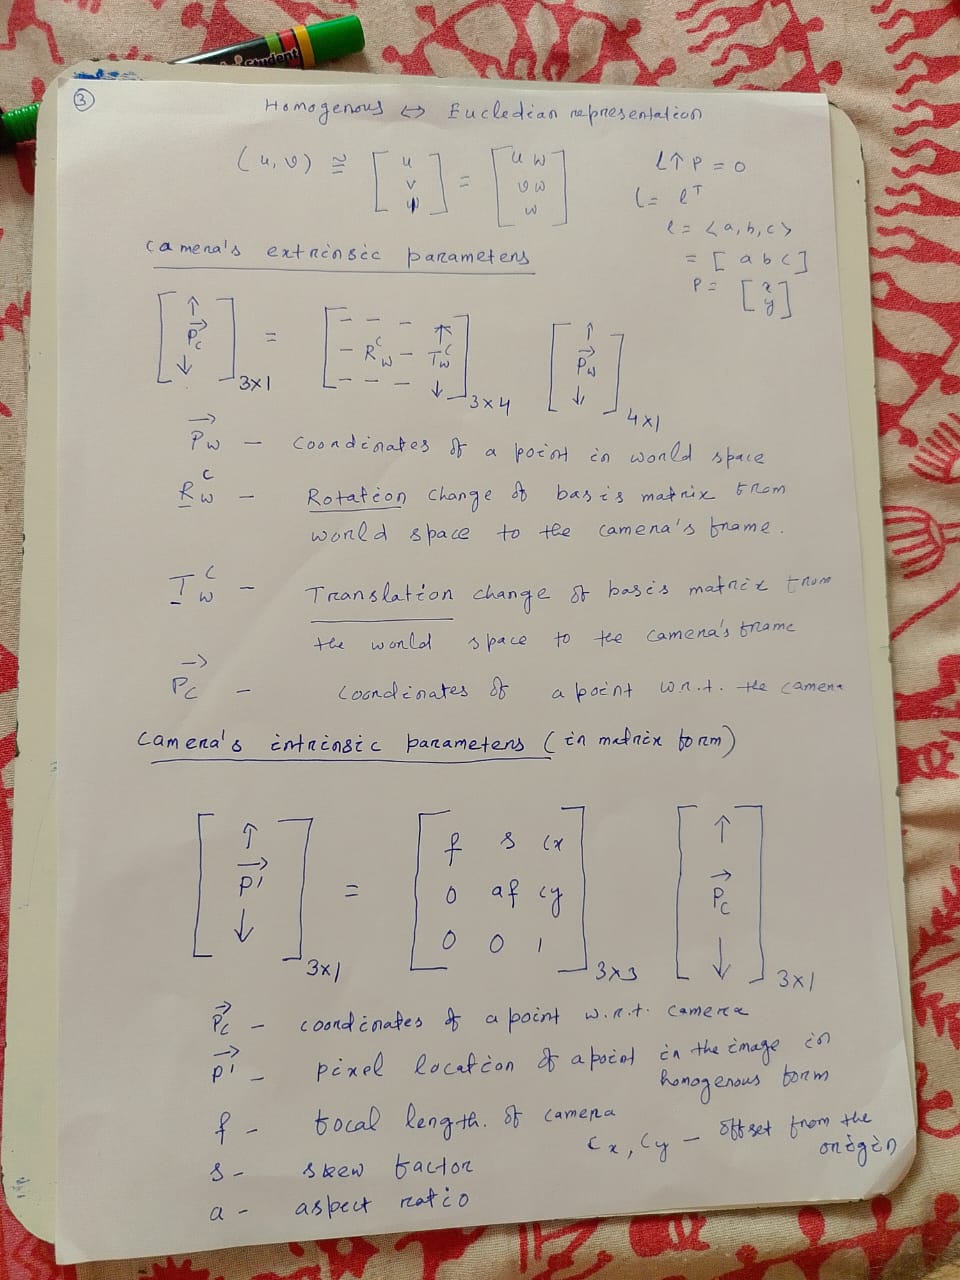 Student
③
Homogenous ⇔ Eucledian representation
(u, v) ≅ [ u v ] = [ uw vw w ]
l↑ P = 0
l = l^T
l = <a, b, c>
= [ a b c ]
P = [ x y ]
Camera's extrinsic parameters
[ ↑ P⃗_c ↓ ] 3x1 = [ - - - - R_w^c - - - - ↑ T_w^c ↓ ] 3x4 [ ↑ P⃗_w ↓ ] 4x1
P⃗_w - coordinates of a point in world space
R_w^c - Rotation change of basis matrix from
world space to the camera's frame.
T_w^c - Translation change of basis matrix from
the world space to the camera's frame
P⃗_c - coordinates of a point w.r.t. the camera
Camera's intrinsic parameters (in matrix form)
[ ↑ P⃗' ↓ ] 3x1 = [ f s cx
0 af cy
0 0 1 ] 3x3 [ ↑ P⃗_c ↓ ] 3x1
P⃗_c - coordinates of a point w.r.t. camera
P⃗' - pixel location of a point in the image in
homogenous form
f - focal length. of camera
cx, cy - offset from the
origin
s - skew factor
a - aspect ratio